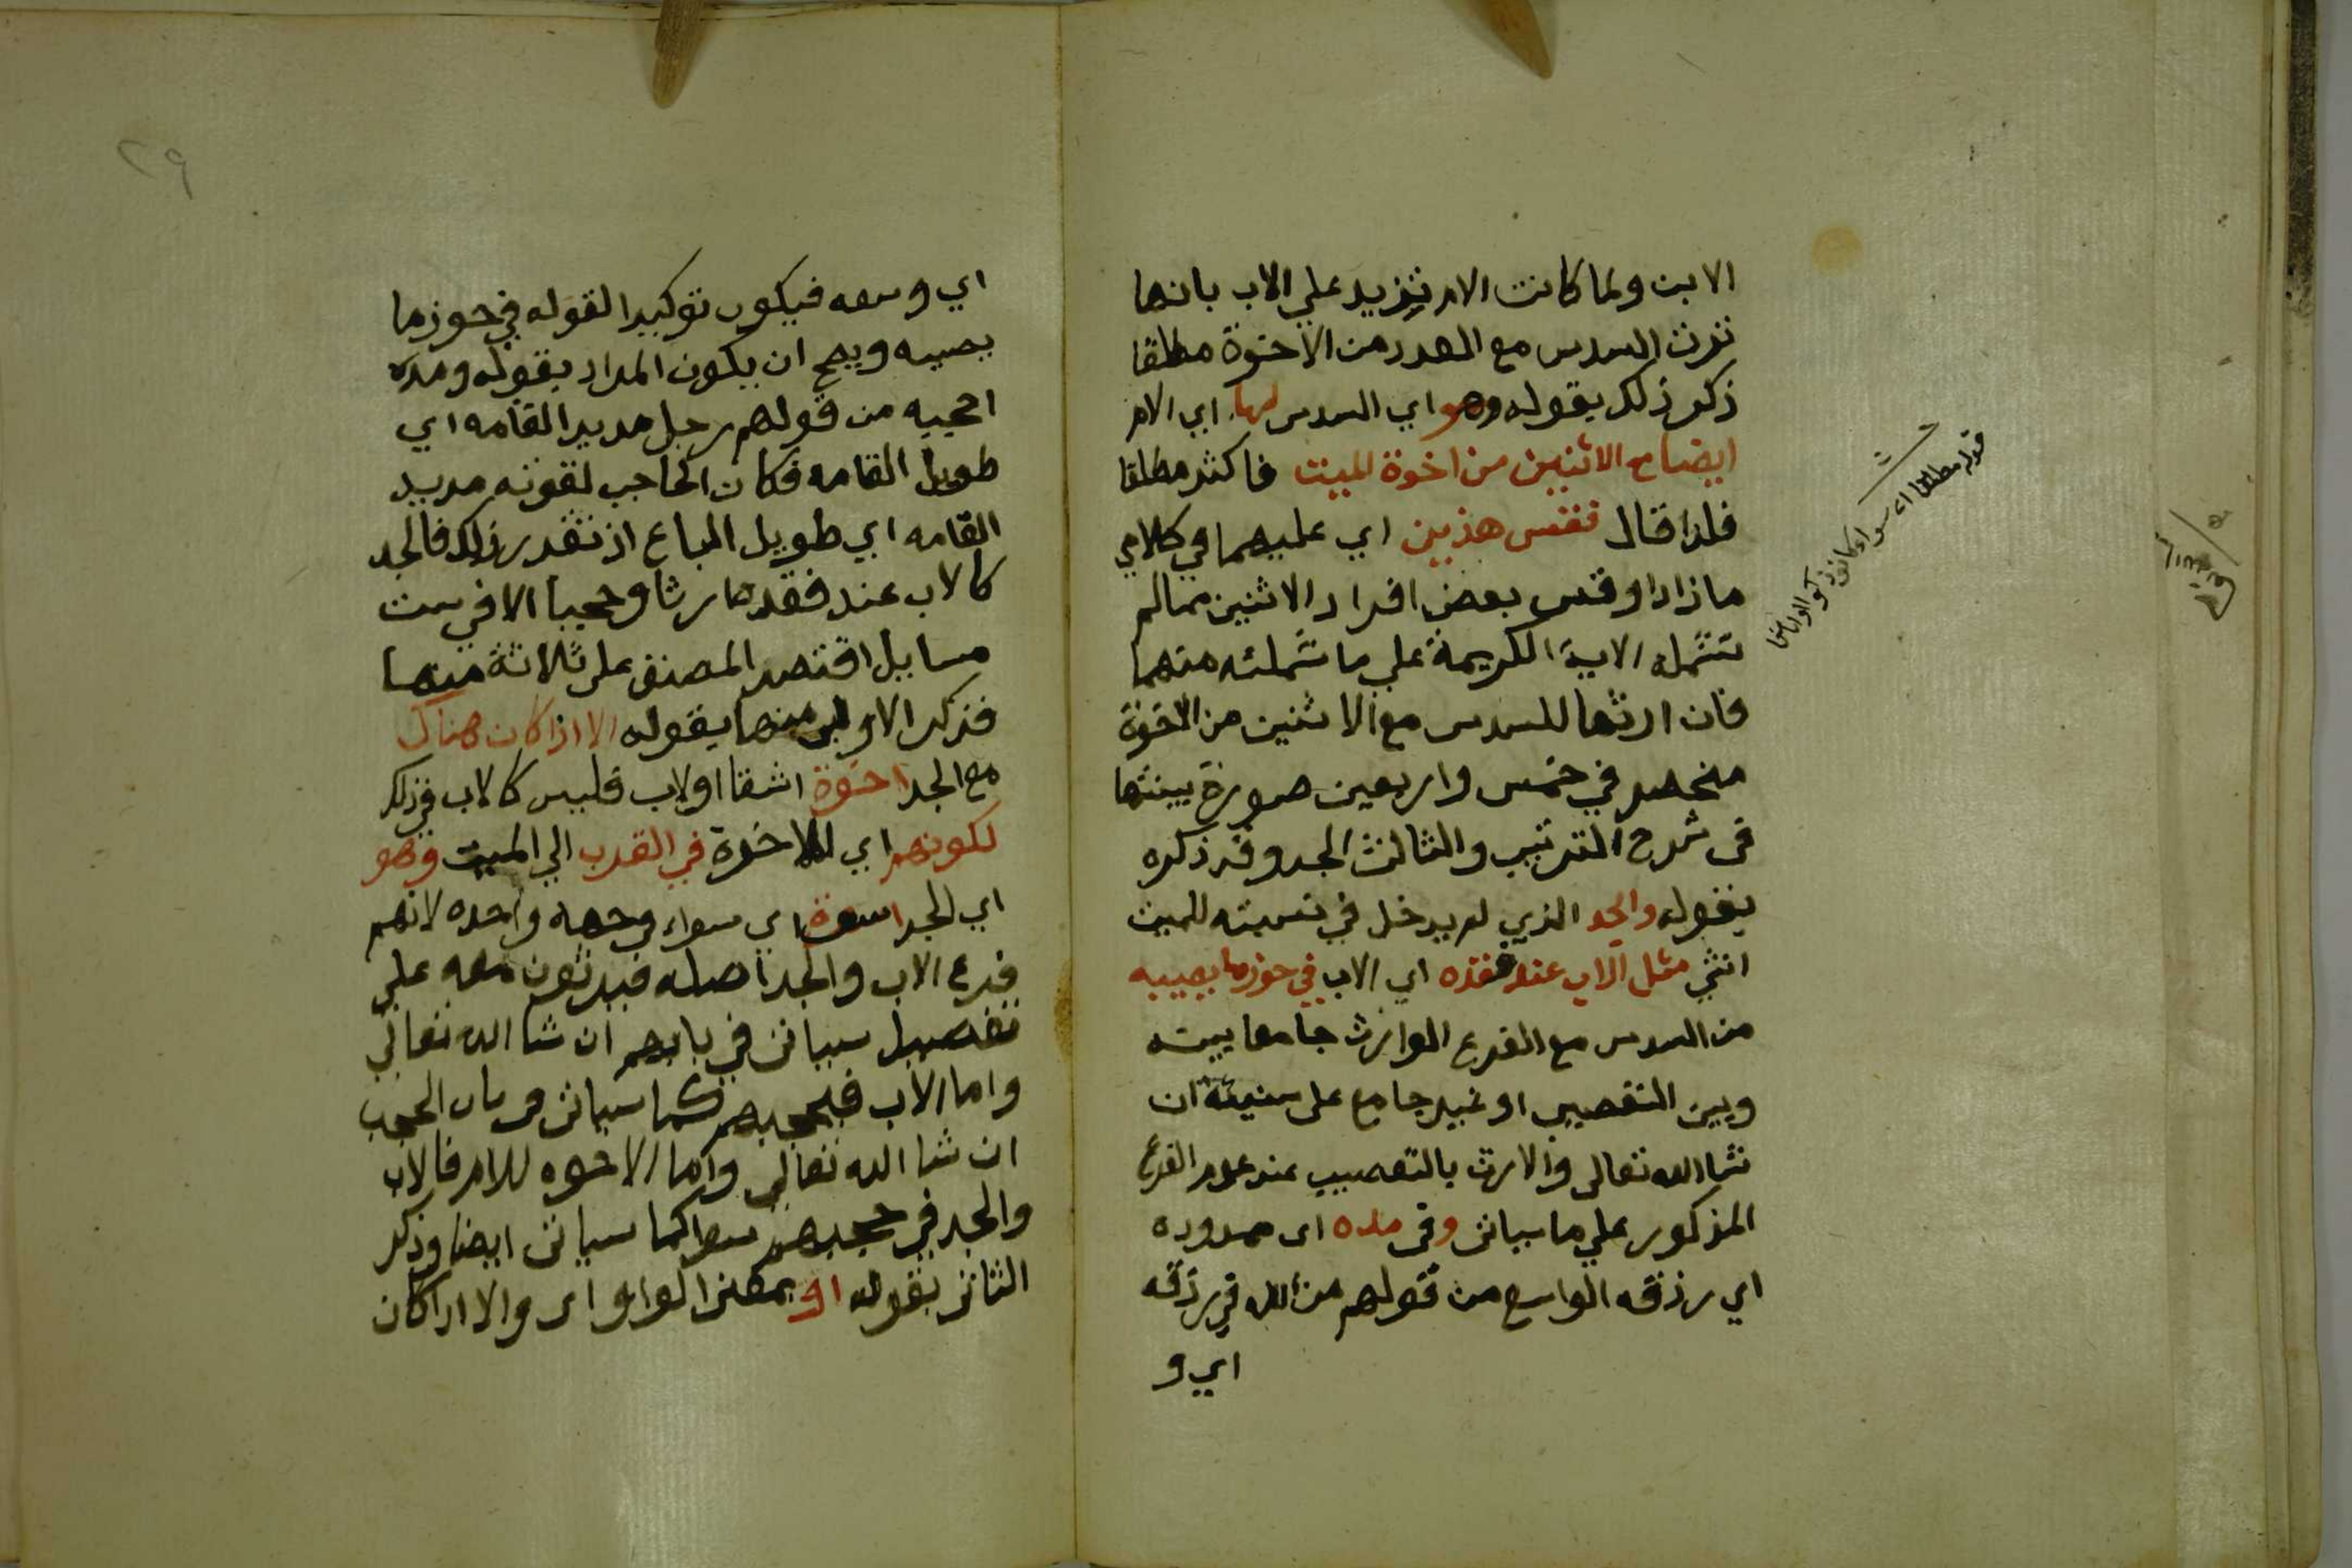 الابن ولما كانت الام تزيد علي الاب بانها
ترث السدس مع العدد من الاخوة مطلقا
ذكر ذلك بقوله وهو اي السدس لها اي الام
ايضا مع الاثنين من اخوة الميت فاكثر مطلقا
فلذا قال فقس هذين اي عليهما في كلامي
مازاد او قس بعض افراد الاثنين مما لم
تشمله الاية الكريمة علي ما شملته منهما
فان ارثها للسدس مع الاثنين من الاخوة
منحصر في خمس واربعين صورة بينتها
في شرح الترتيب والثالث الجد وقد ذكره
بقوله والجد الذي لم يدخل في نسبته للميت
انثي مثل الاب عند فقده اي الاب في حوز ما يصيبه
من السدس مع الفرع الوارث جامعا بينه
وبين التعصيب او غير جامع علي ان
شا الله تعالي والارث بالتعصيب عند عدم الفرع
المذكور علي ما سياتي وفي مده اي ممدوده
اي رزقه الواسع من قولهم مد الله في رزقه
اي و
قوله مطلقا اي سواء كانوا ذكورا او اناثا
٢٩
اي وسعه فيكون توكيدا لقوله في حوز ما
يصيبه ويصح ان يكون المراد بقوله ومده
احجبه من قولهم رجل مديد القامه اي
طويل القامه فكان الحاجب لقوته مديد
القامه اي طويل الباع اذ تقرر ذلك فالجد
كالاب عند فقده ارثا وحجبا الا في ست
مسايل اقتصر المصنف علي ثلاثة منها
فذكر الاولي منها بقوله الا اذا كان هناك
مع الجد اخوة اشقا او لاب فليس كالاب في ذلك
لكونهم اي الاخوة في القرب الي الميت وهو
اي الجد اسوة اي سواء وجهه واحده لانهم
فرع الاب والجد اصله فيرثون معه علي
تفصيل سياتي في بابهم ان شا الله تعالي
واما الاب فيحجبهم كما سياتي في باب الحجب
ان شا الله تعالي واما الاخوه للام فالاب
والجد في حجبهم سوا كما سياتي ايضا وذكر
الثاني بقوله او بمعني الواو اي والا اذا كان